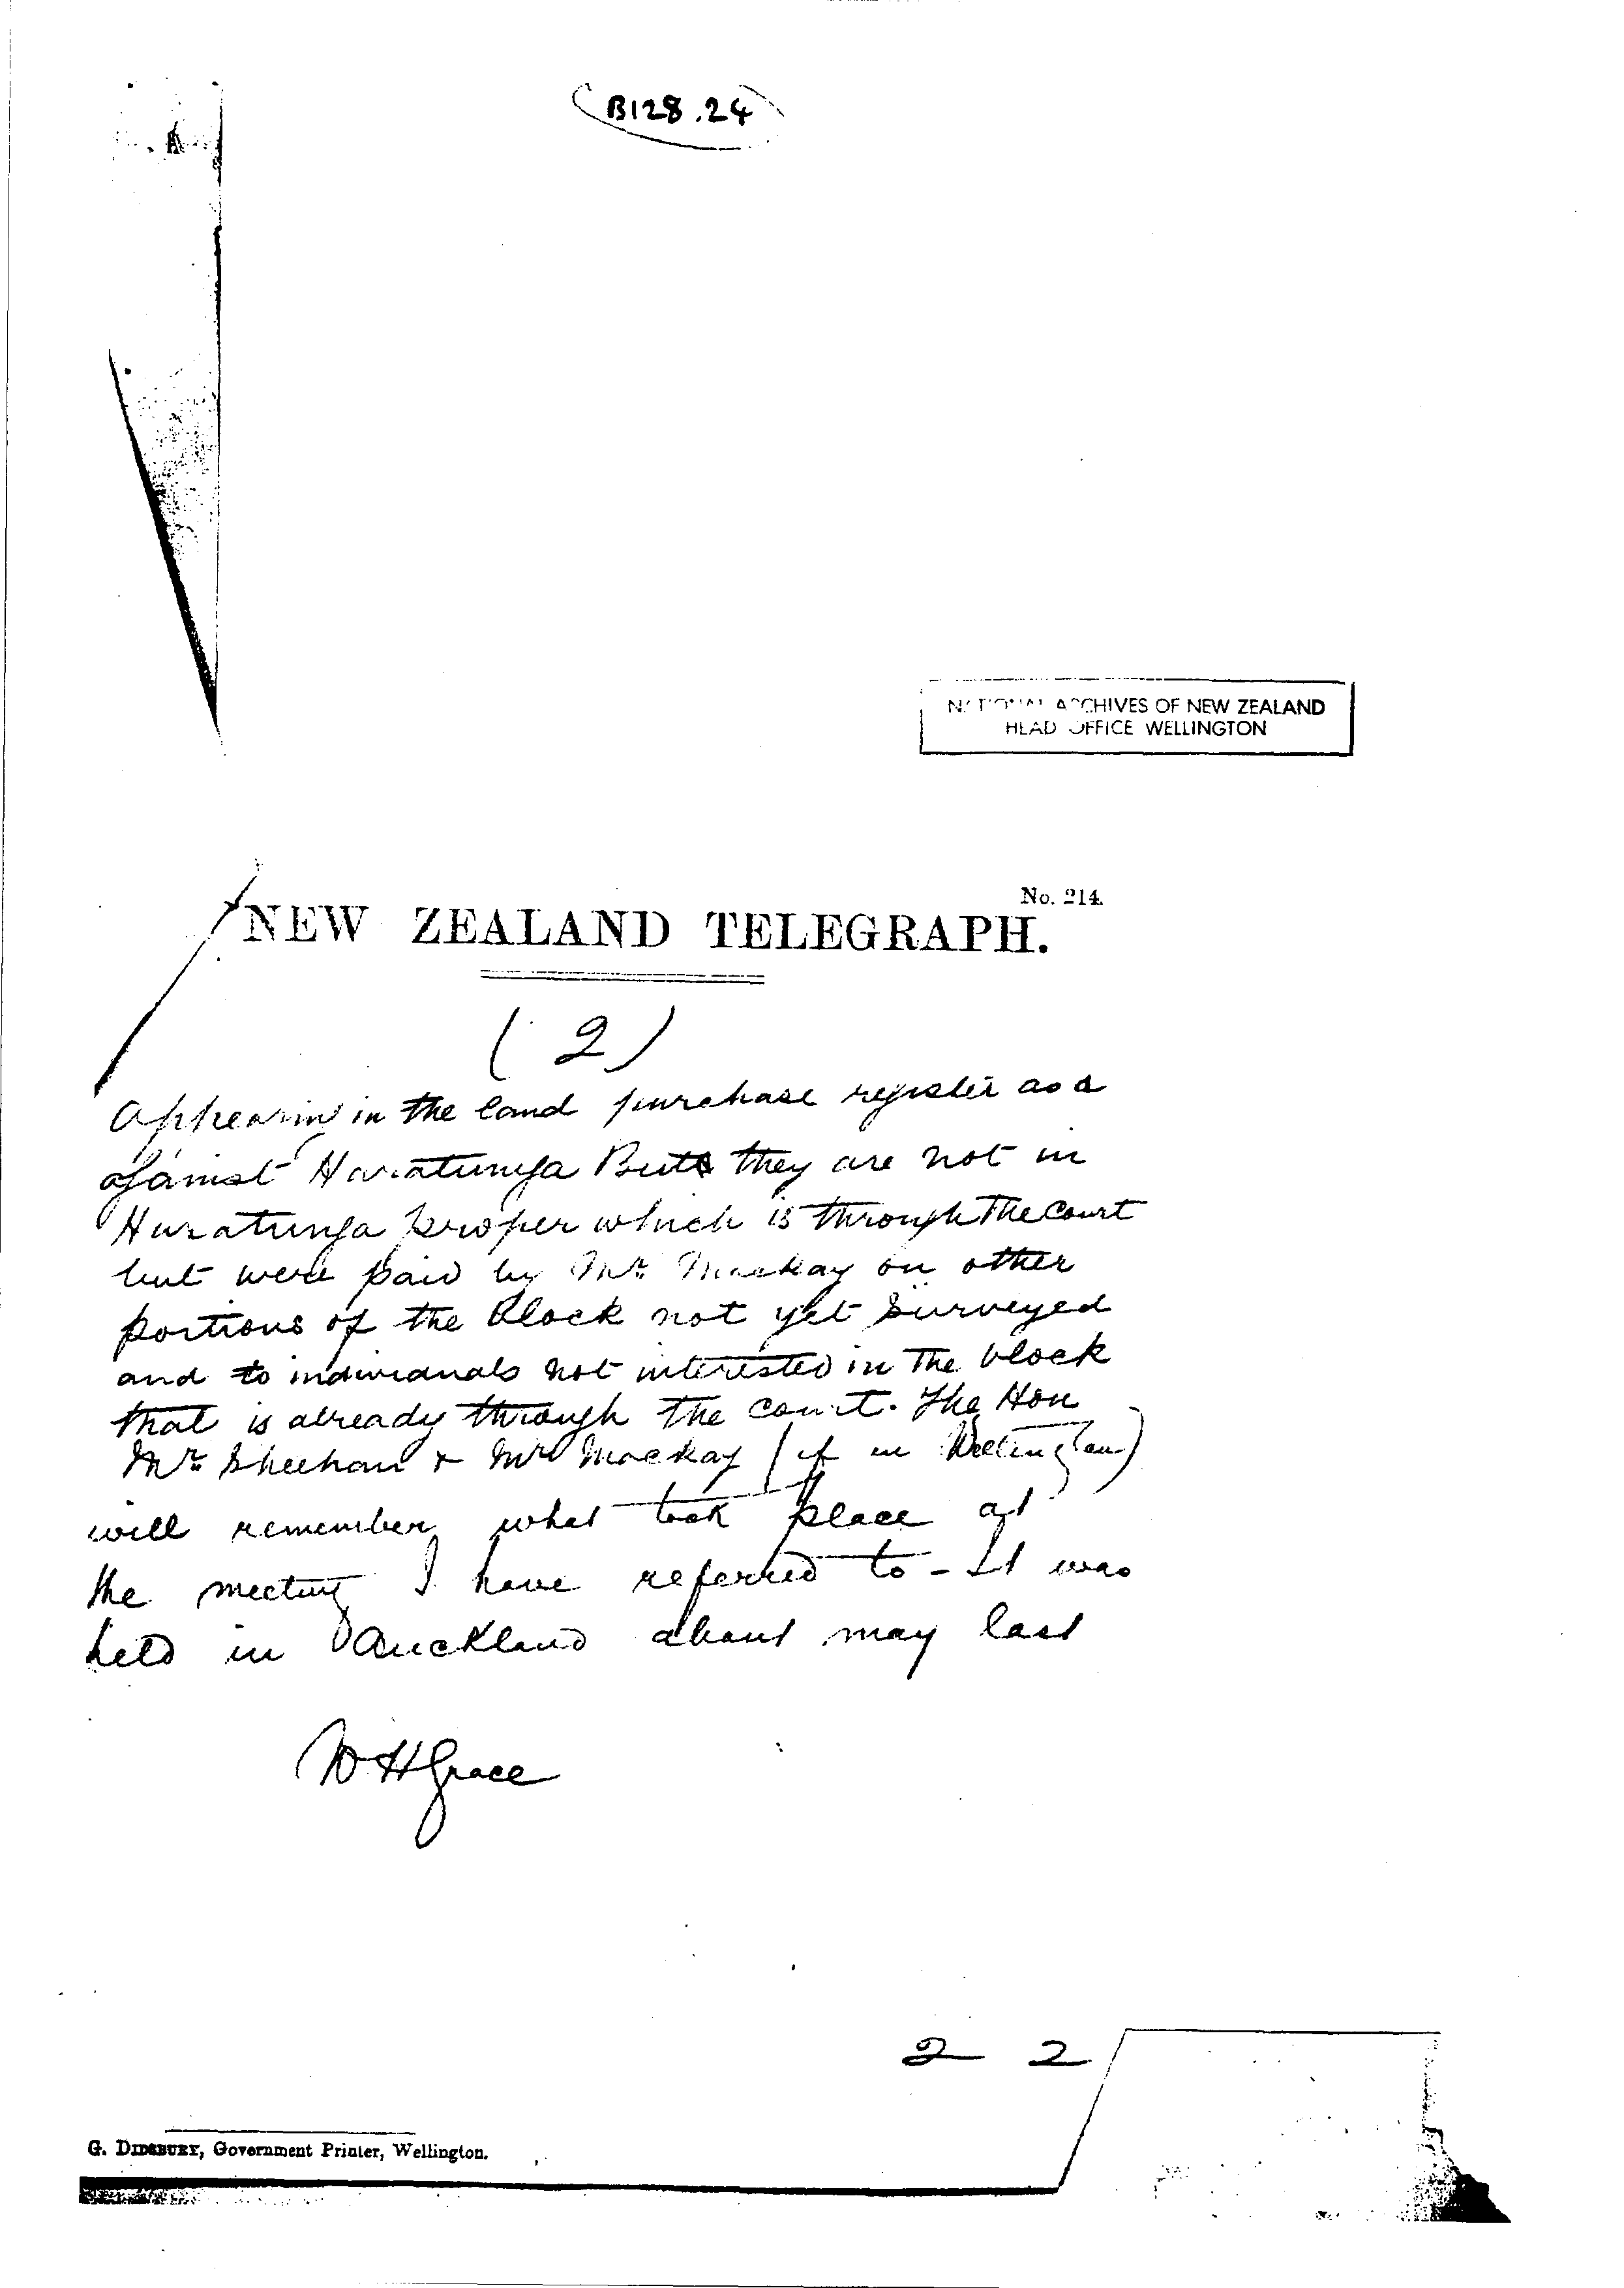 B128.24
NATIONAL ARCHIVES OF NEW ZEALAND
HEAD OFFICE WELLINGTON
No. 214.
NEW ZEALAND TELEGRAPH.
(2)
Appearing in the land purchase register as a
against Haratunga But they are not in
Huratunga proper which is through the Court
but were paid by Mr Mackay on other
portions of the block not yet surveyed
and to individuals not interested in the block
that is already through the court. The Hon
Mr Sheehan & Mr Mackay (if in Wellington)
will remember what took place at
the meeting I have referred to - It was
held in Auckland about may last
WHGrace
2 2
G. DIDSBURY, Government Printer, Wellington.